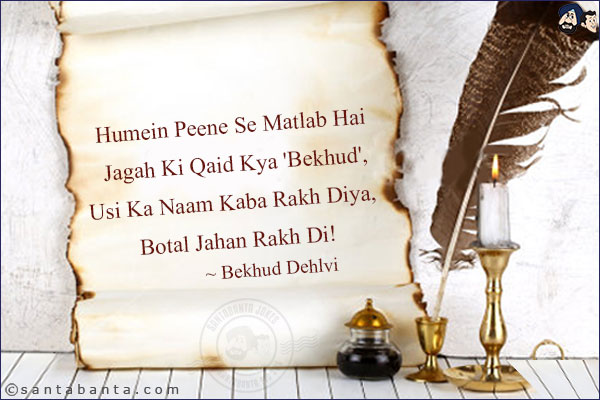 Humein Peene Se Matlab Hai
Jagah Ki Qaid Kya 'Bekhud',
Usi Ka Naam Kaba Rakh Diya,
Botal Jahan Rakh Di!
~ Bekhud Dehlvi
SANTABANTA JOKES
©santabanta.com